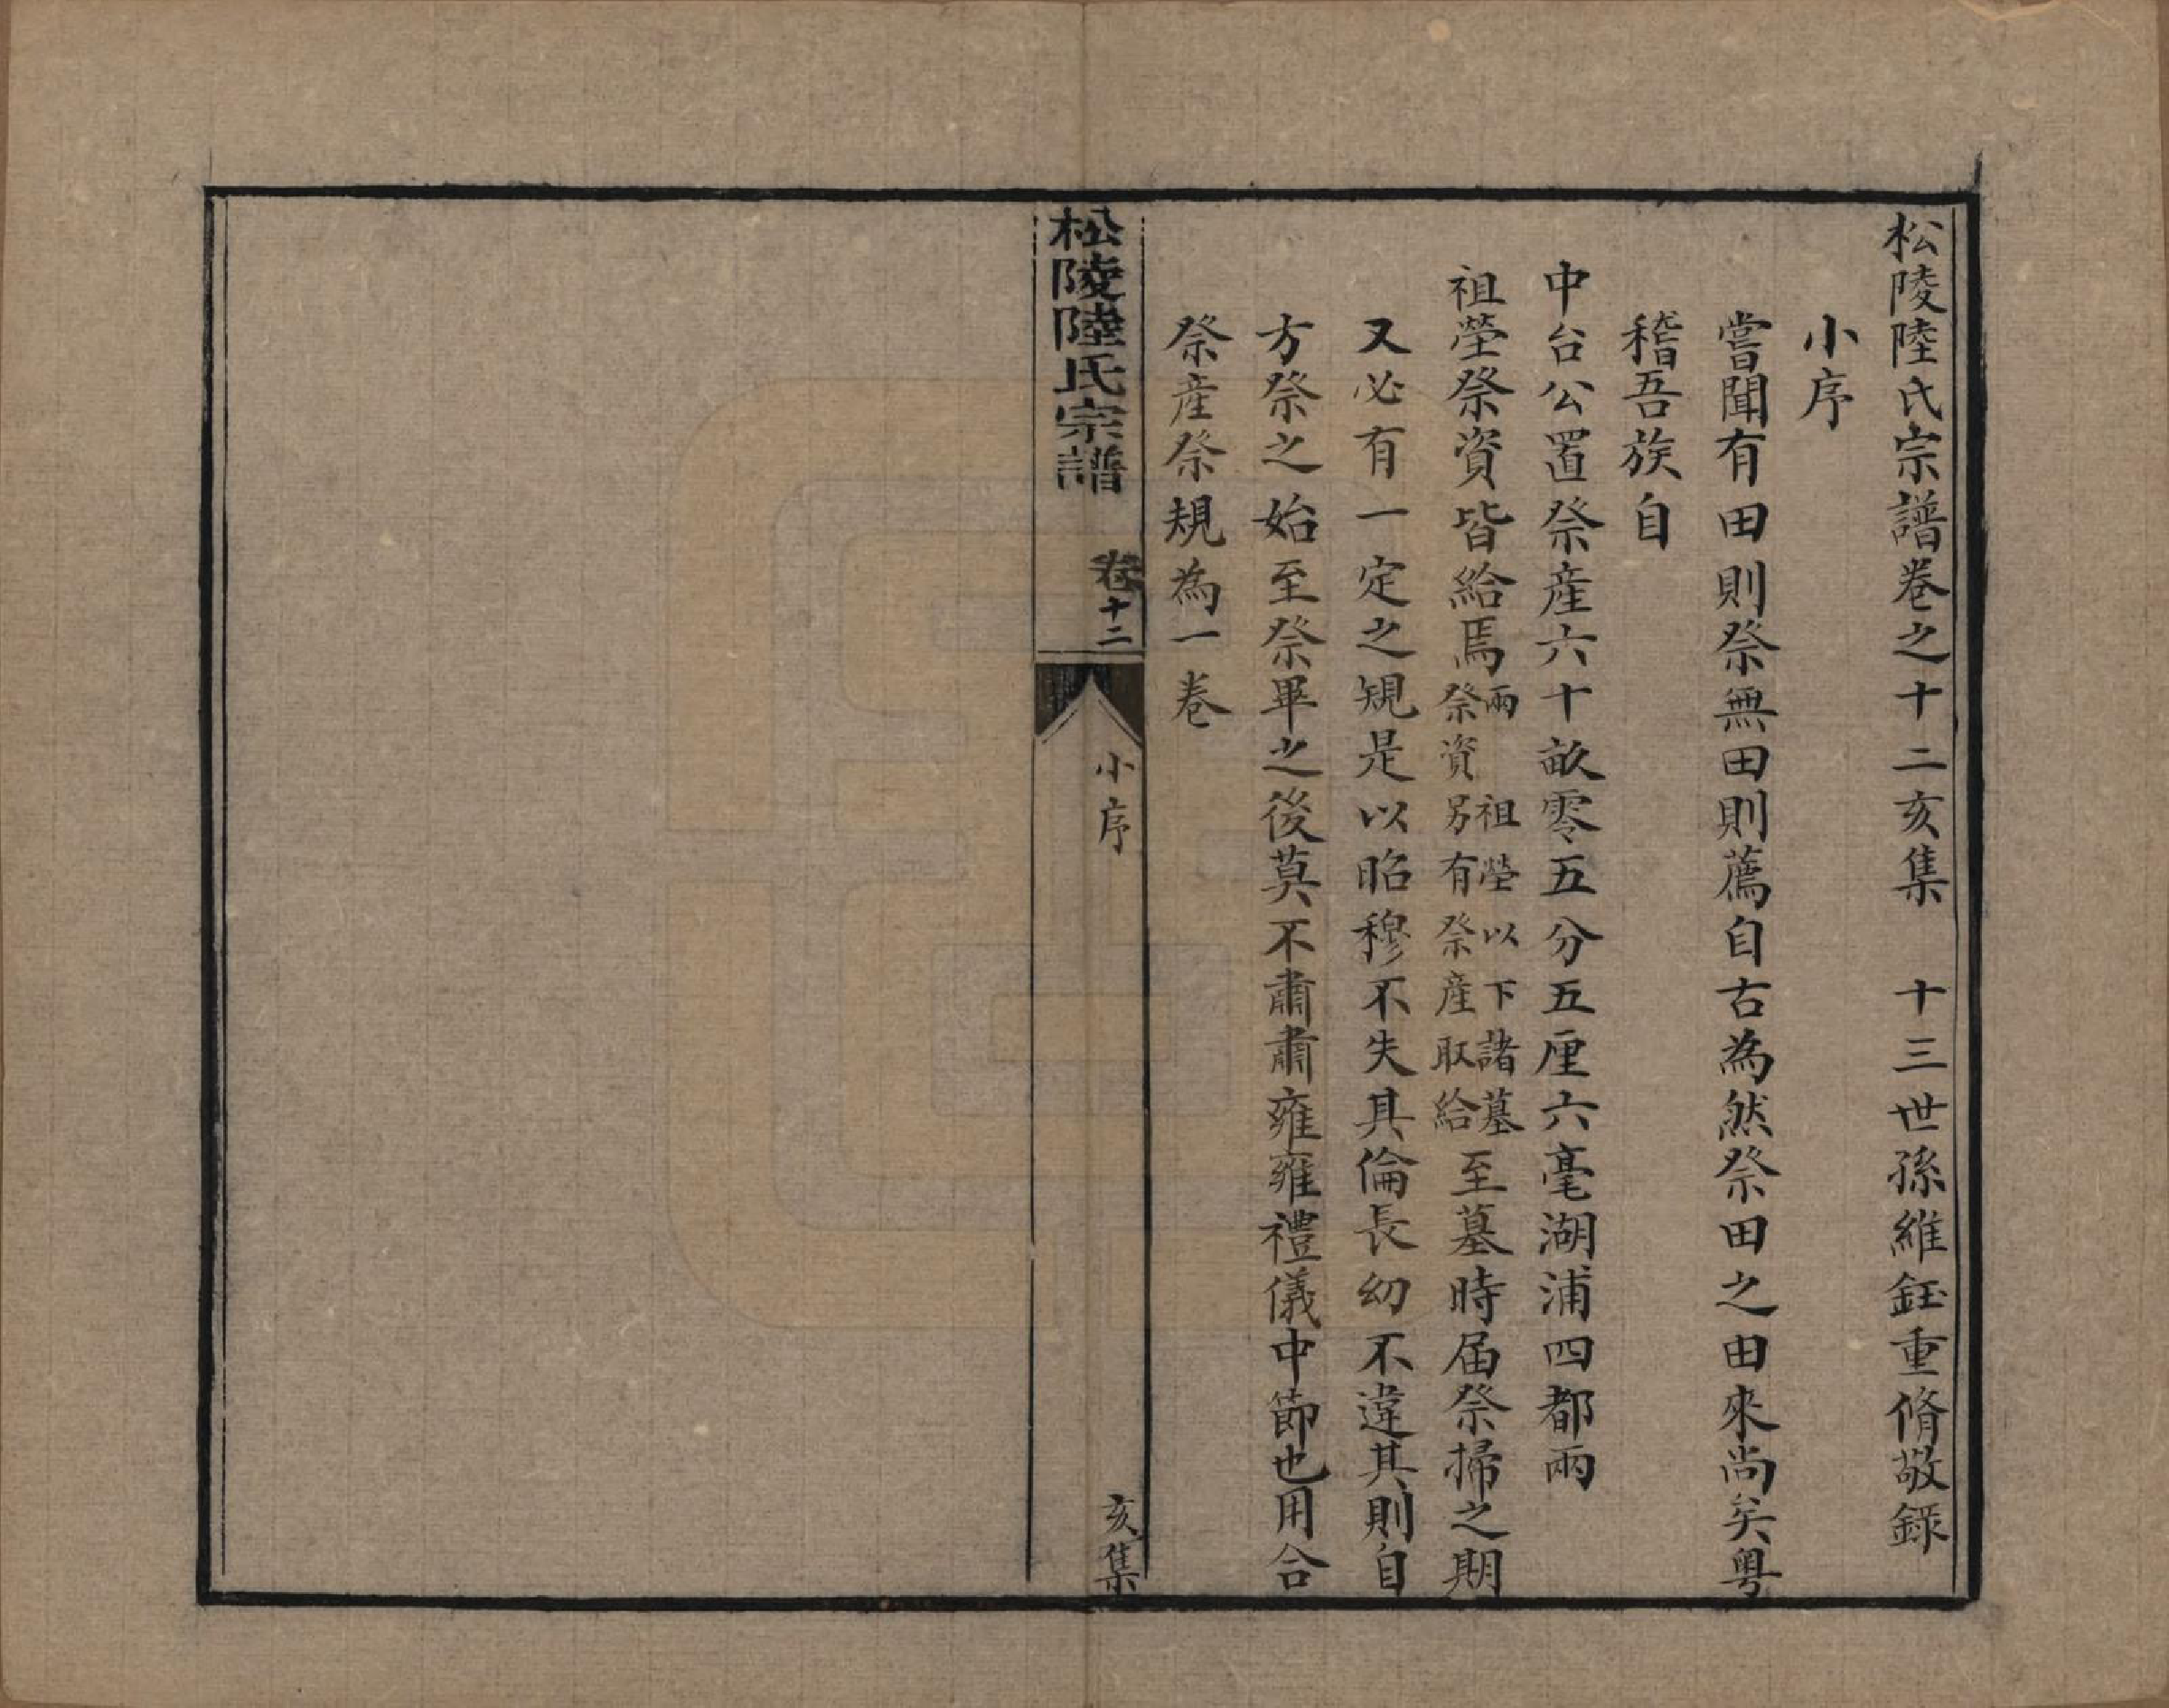 松陵陸氏宗譜卷之十二亥集　十三世孫維鈺重脩敬錄
小序
嘗聞有田則祭無田則薦自古為然祭田之由來尚矣粤
稽吾族自
中台公置祭產六十畝零五分五厘六毫湖浦四都兩
祖塋祭資皆給焉兩　祖塋以下諸墓祭資另有祭產取給至墓時届祭掃之期
又必有一定之規是以昭穆不失其倫長幼不違其則自
方祭之始至祭畢之後莫不肅肅雍雍禮儀中節也用合
祭產祭規為一卷
松陵陸氏宗譜　卷十二　小序　亥集